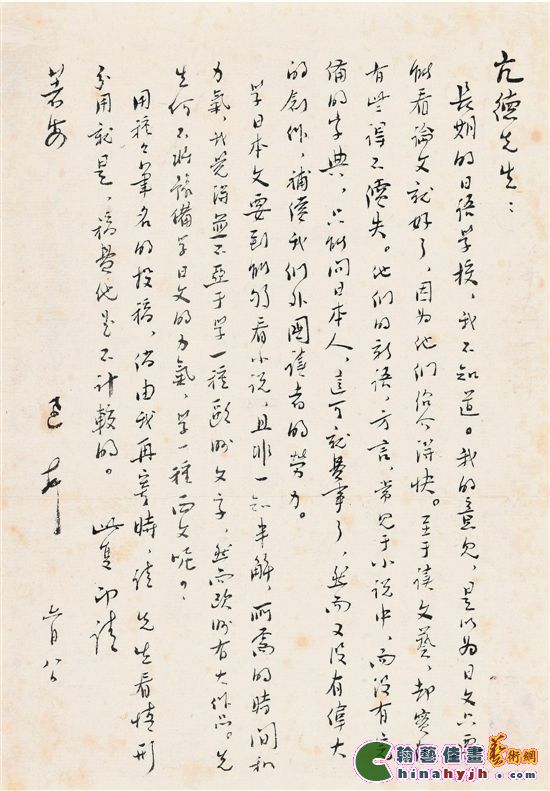 亢德先生：
長期的日语學校，我不知道。我的意見，是以为日文只要
能看論文就好了，因为他们绍介得快。至于读文藝，却實在
有些得不償失。他们的新语，方言，常見于小说中，而没有完
備的字典，只能问日本人，這可就費事了，然而又没有偉大
的創作，補償我们外國讀者的勞力。
學日本文要到能够看小说，且非一知半解，所需的時间和
力氣，我覺得並不亞于学一種歐洲文字，然而欧洲有大作品。先
生何不將豫備学日文的力氣，学一種西文呢？
用種々筆名的投稿，倘由我再寄時，請 先生看情形
分用就是，稿費他是不计較的。 此复 即請
著安
迅 六月八日
翰藝佳畫藝術網
Chinahyjh.com